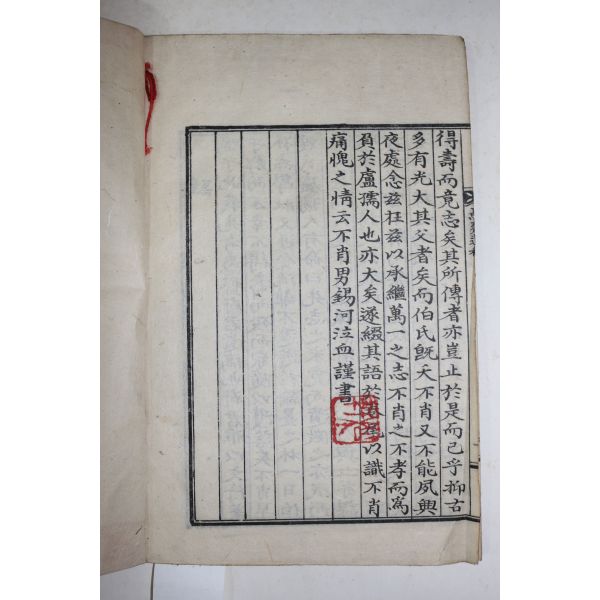 得壽而竟志矣其所傳者亦豈止於是而已乎抑古
多有光大其父者矣而伯氏旣夭不肖又不能夙興
夜處念玆在玆以承繼萬一之志不肖之不孝而爲
負於盧孺人也亦大矣遂綴其語於卷尾以識不肖
痛愧之情云不肖男錫河泣血謹書